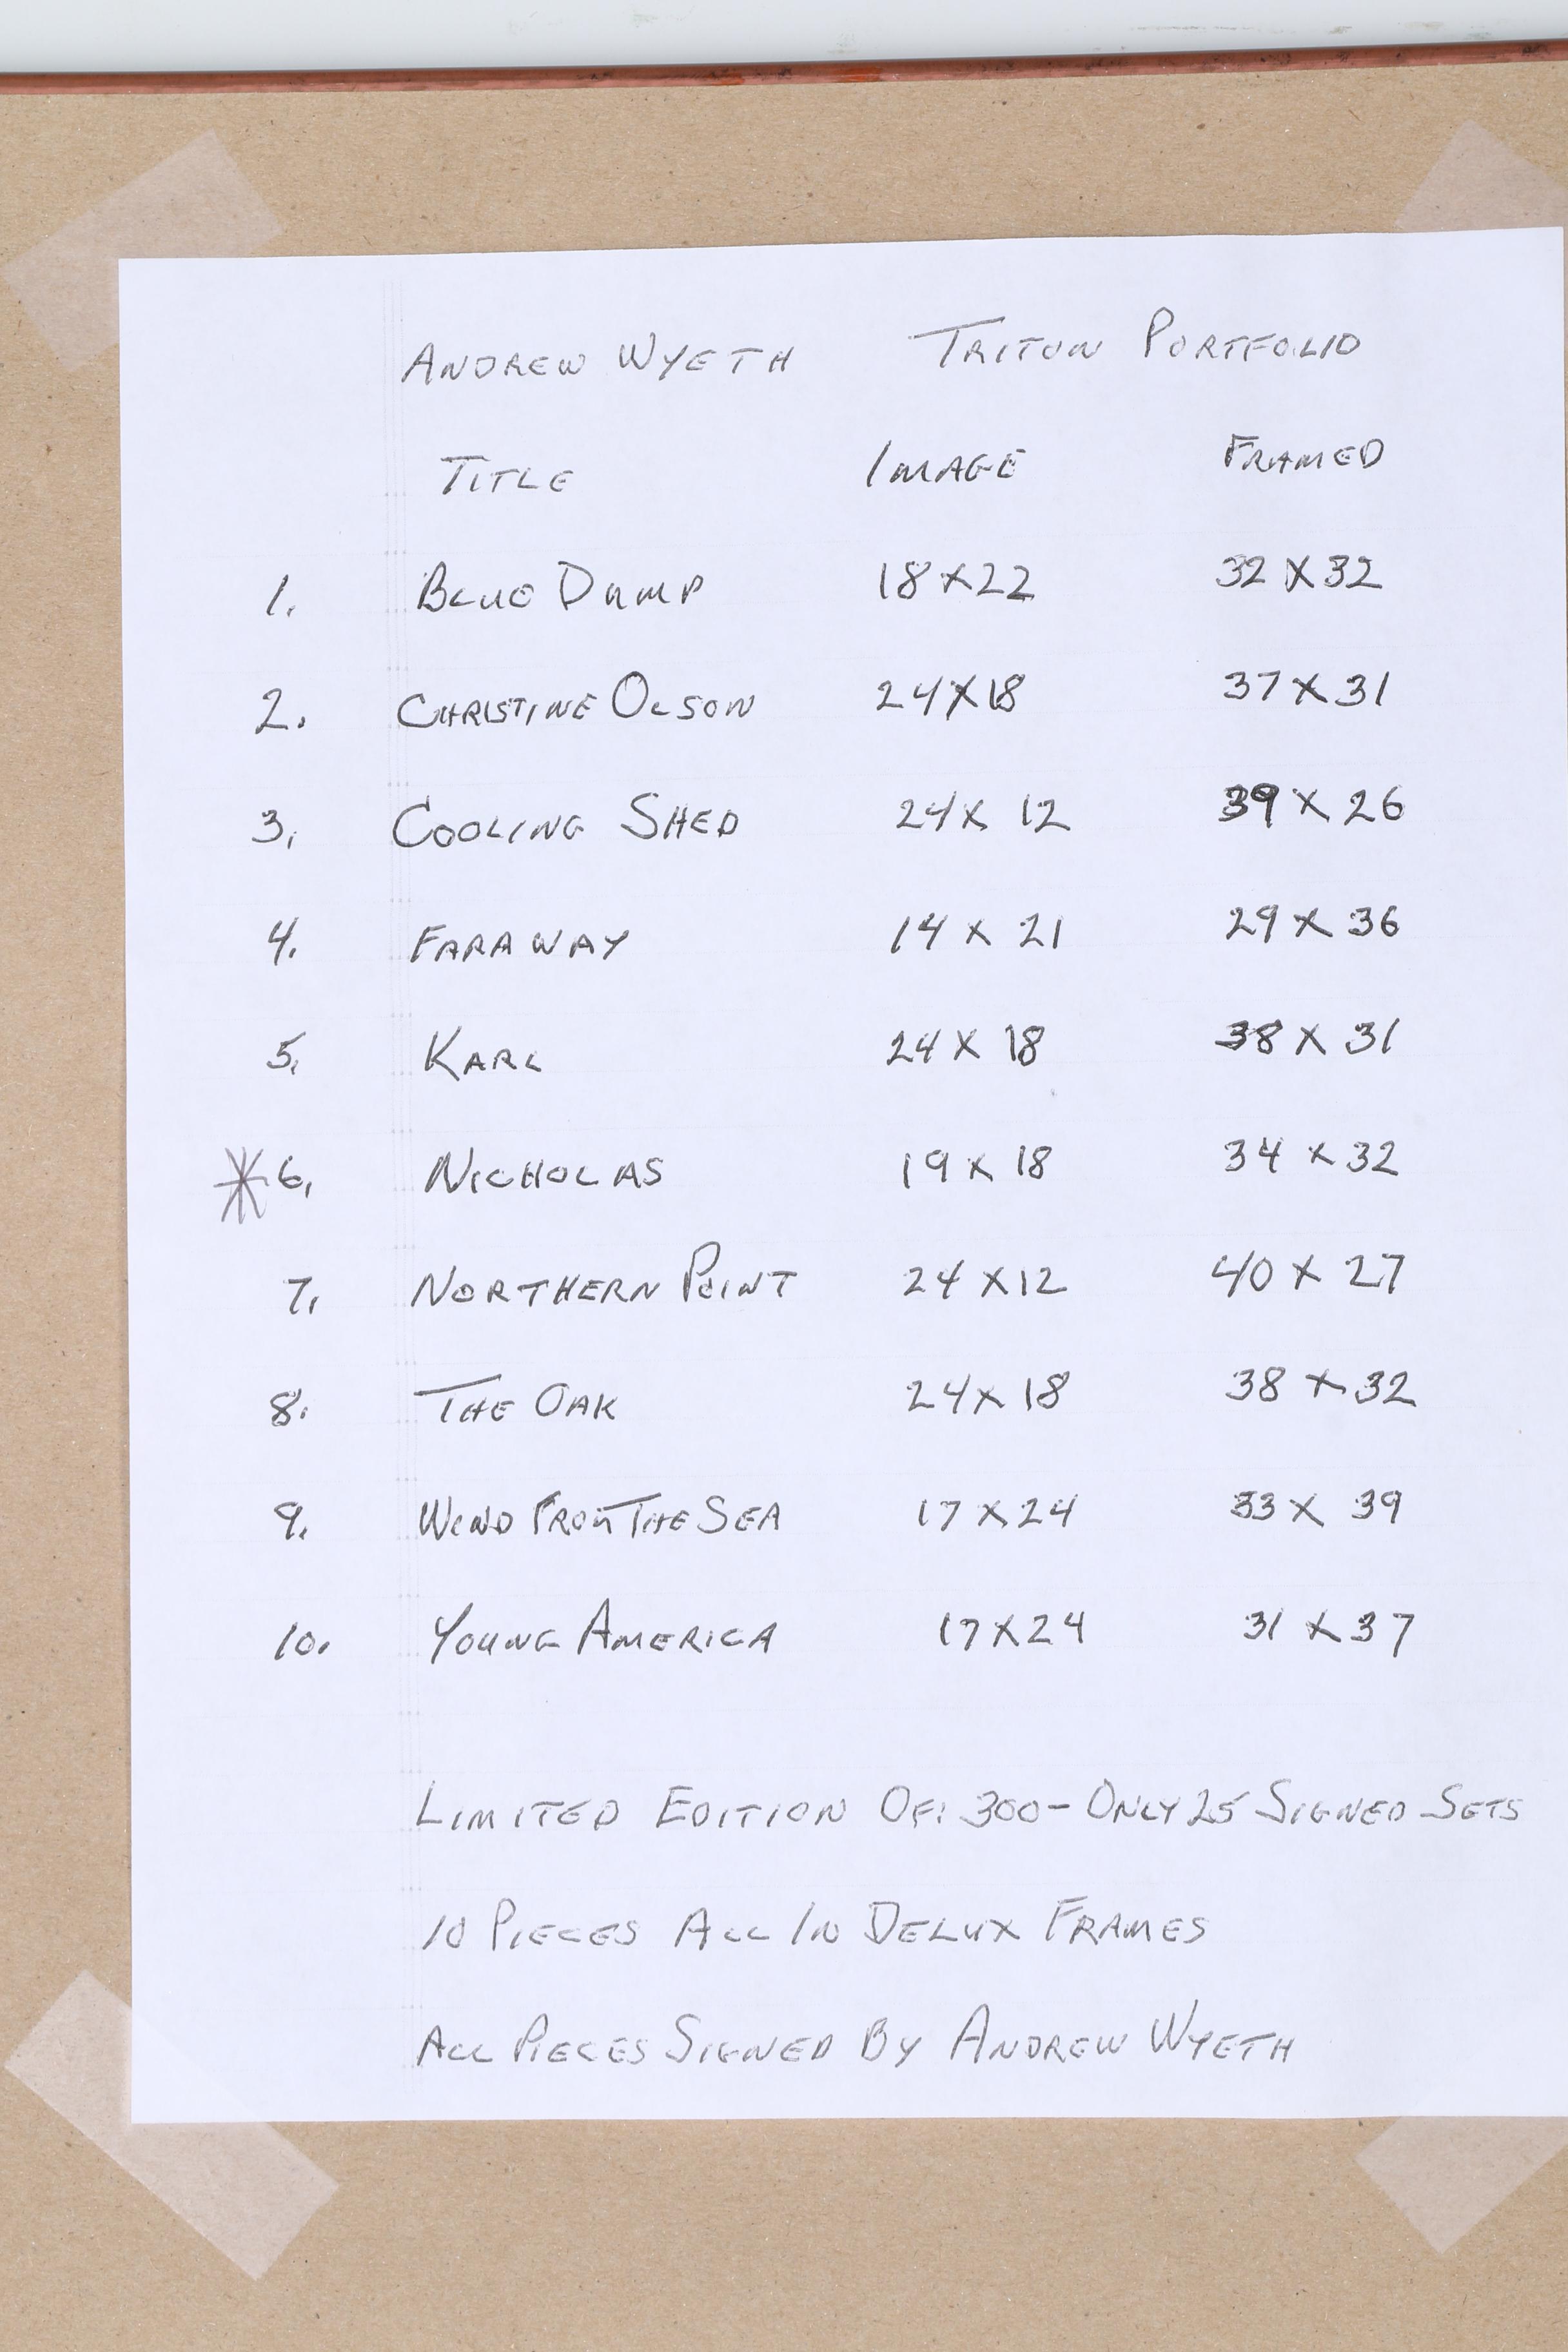 ANDREW WYETH TRITON PORTFOLIO
TITLE IMAGE FRAMED
1. BLUE DUMP 18X22 32X32
2. CHRISTINE OLSON 24X18 37X31
3. COOLING SHED 24X 12 39X26
4. FARAWAY 14X 21 29X 36
5. KARL 24X 18 38X 31
*6. NICHOLAS 19X 18 34X32
7. NORTHERN POINT 24X12 40X 27
8. THE OAK 24X 18 38X32
9. WIND FROM THE SEA 17X24 33X 39
10. YOUNG AMERICA 17X24 31X37
LIMITED EDITION OF: 300-ONLY 25 SIGNED SETS
10 PIECES ALL IN DELUX FRAMES
ALL PIECES SIGNED BY ANDREW WYETH